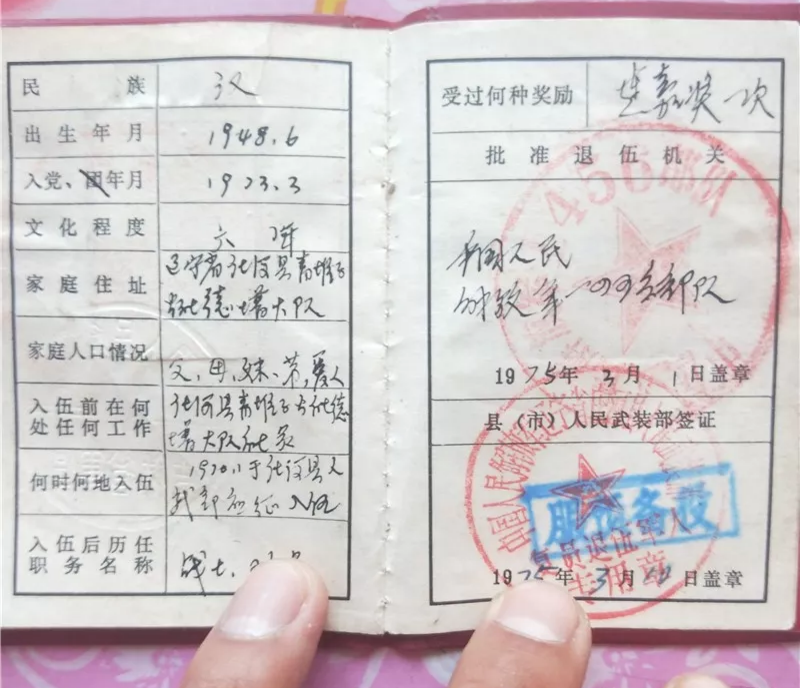 民族 汉
出生年月 1948.6
入党、团年月 1973.3
文化程度 六年
家庭住址 辽宁省庄河县青堆子
大队
家庭人口情况 父、母、妹、弟、爱人
入伍前在何
处任何工作
庄河县青堆子公社德
大队社员
何时何地入伍 1970.11于庄河县人
武部应征入伍
入伍后历任
职务名称
战士、
受过何种奖励 连嘉奖一次
批准退伍机关
456部队
1975年3月1日盖章
县（市）人民武装部签证
中国人民解放军辽宁省
服预备役
复员退伍军人
专用章
1975年3月日盖章